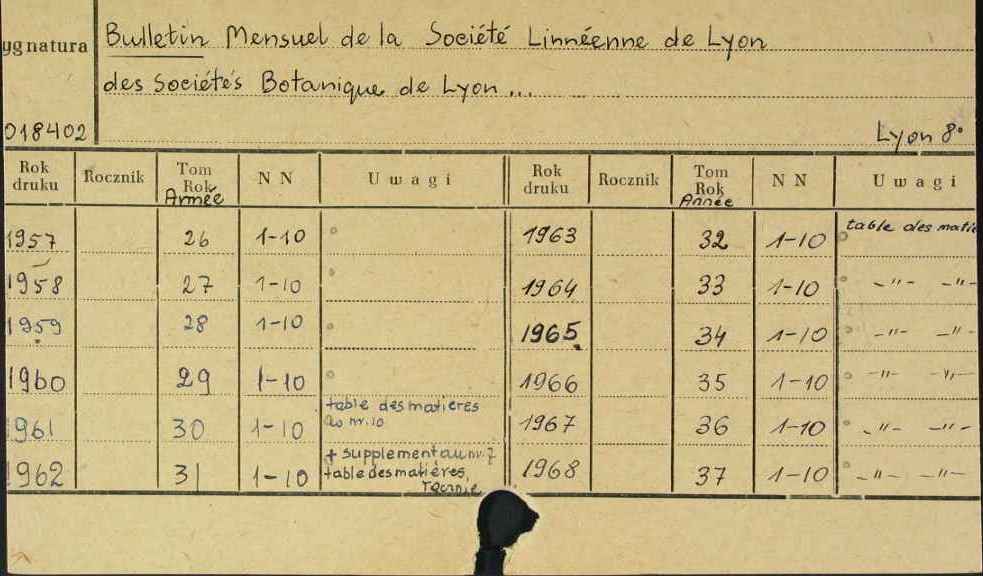 ygnatura
Bulletin Mensuel de la Société Linnéenne de Lyon
des Sociétés Botanique de Lyon...
018402
Lyon 8°
Rok druku Rocznik Tom Rok Année NN Uwagi Rok druku Rocznik Tom Rok Année NN Uwagi
1957 26 1-10 ° 1963 32 1-10 ° table des matiè
1958 27 1-10 ° 1964 33 1-10 ° -"- -"-
1959 28 1-10 ° 1965 34 1-10 ° -"- -"-
1960 29 1-10 ° 1966 35 1-10 ° -"- -"-
1961 30 1-10 table des matieres
nr. 10 1967 36 1-10 ° -"- -"-
1962 31 1-10 + supplement au nr. 7
table des matières, 1968 37 1-10 ° -"- -"-